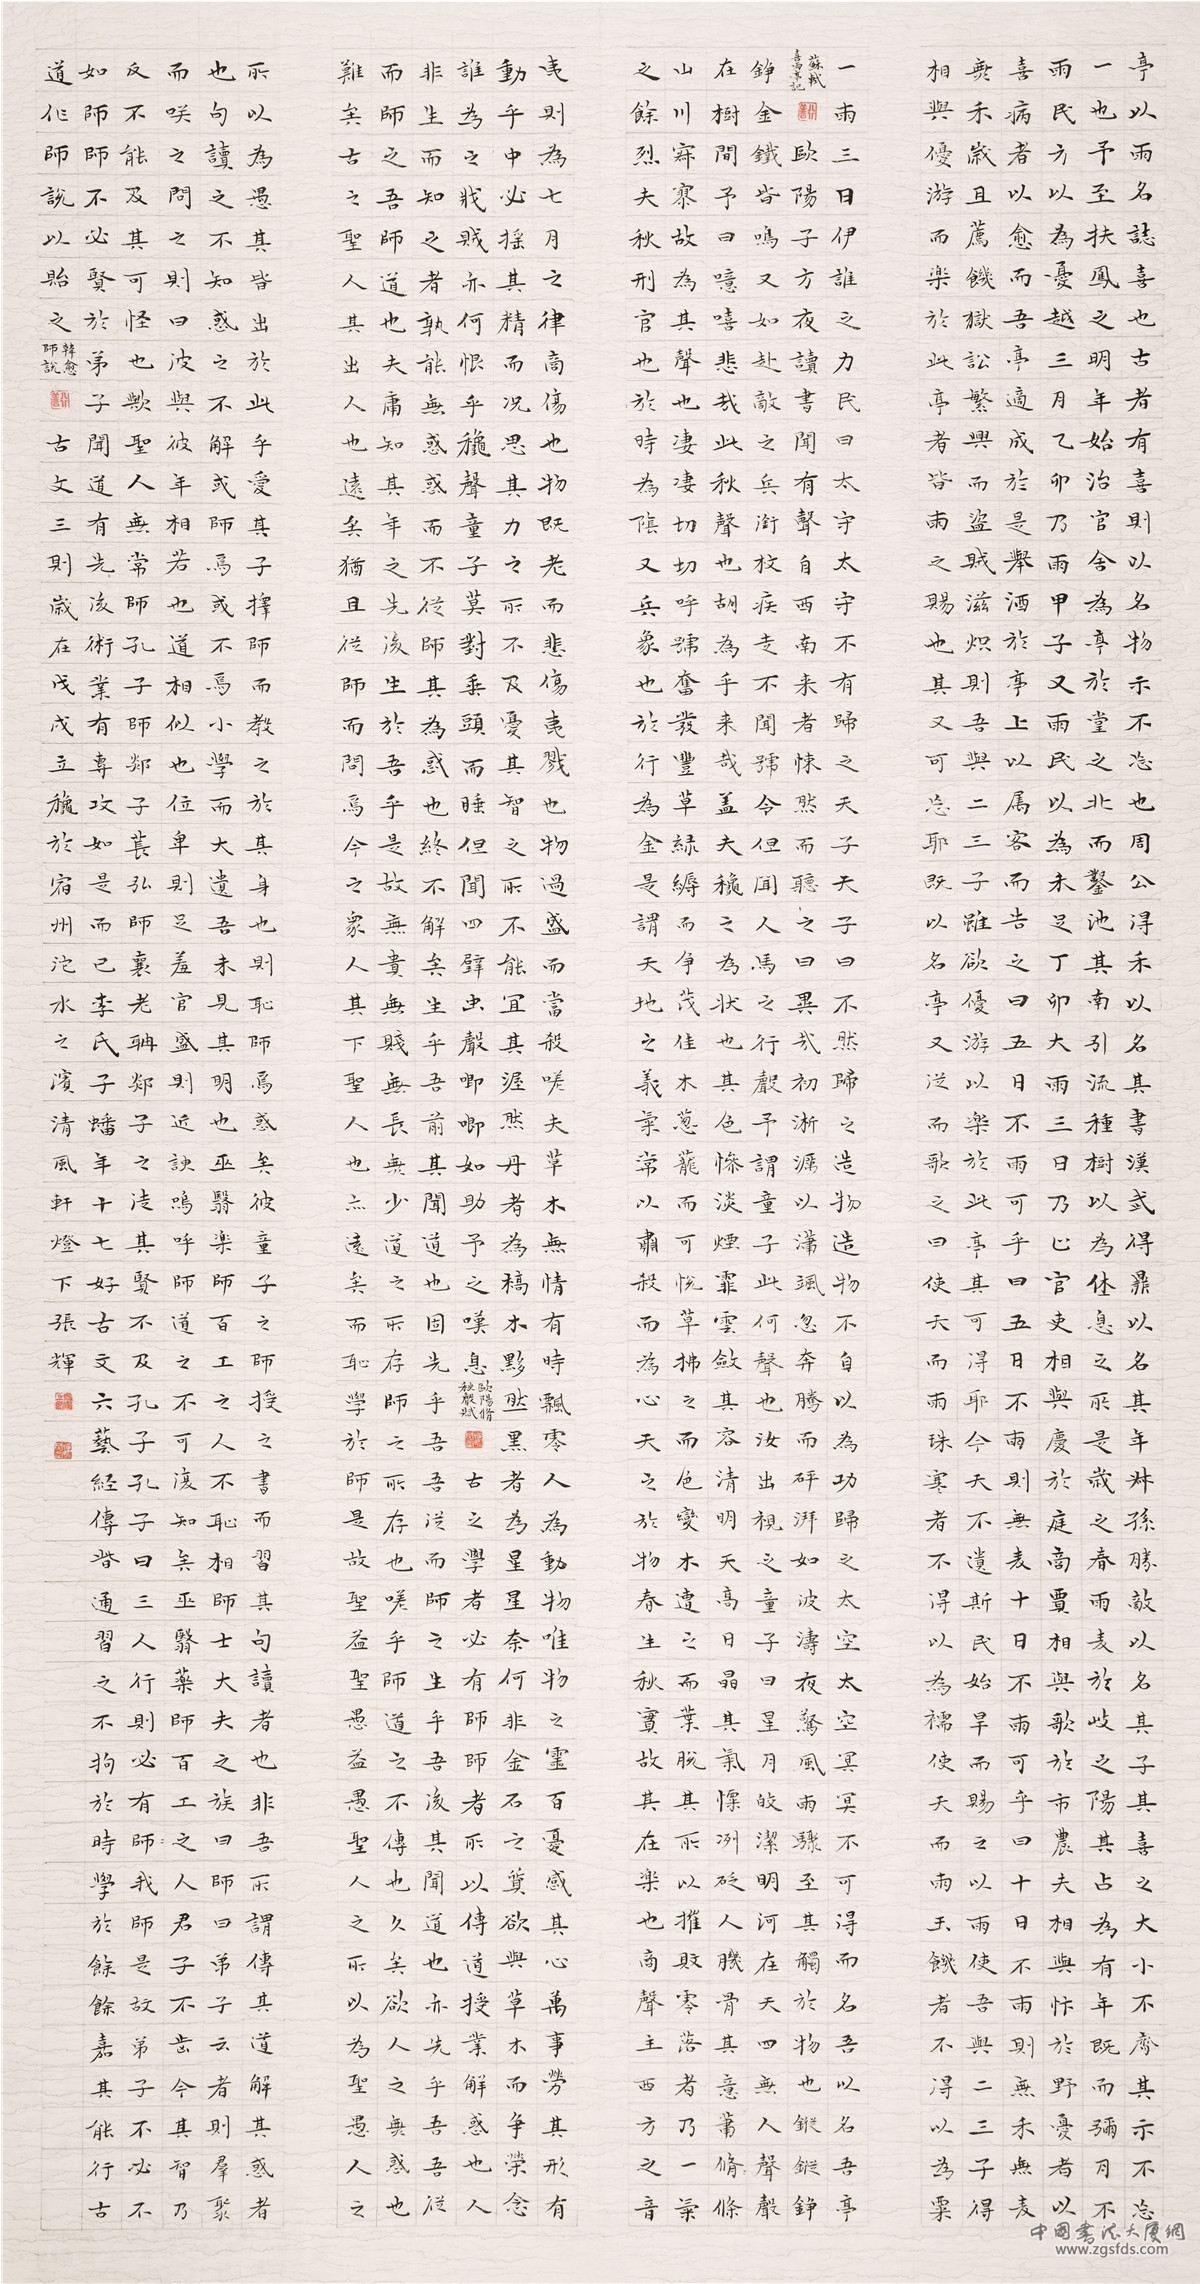 亭以雨名誌喜也古者有喜則以名物示不忘也周公得禾以名其書漢武得鼎以名其年叔孫勝敵以名其子其喜之大小不齊其示不忘
一也予至扶鳳之明年始治官舍為亭於堂之北而鑿池其南引流種樹以為休息之所是歲之春雨麦於岐之陽其占為有年既而彌月不
雨民方以為憂越三月乙卯乃雨甲子又雨民以為未足丁卯大雨三日乃止官吏相與慶於庭商賈相與歌於市農夫相與忭於野憂者以
喜病者以愈而吾亭適成於是舉酒於亭上以属客而告之曰五日不雨可乎曰五日不雨則無麦十日不雨可乎曰十日不雨則無禾無麦
無禾歲且薦饑獄訟繁興而盜賊滋炽則吾與二三子雖欲優游以楽於此亭其可得耶今天不遺斯民始旱而賜之以雨使吾與二三子得
相與優游而楽於此亭者皆雨之賜也其又可忘耶既以名亭又從而歌之曰使天而雨珠寒者不得以為襦使天而雨玉饑者不得以為粟
一雨三日伊誰之力民曰太守太守不有歸之天子天子曰不然歸之造物造物不自以為功歸之太空太空冥冥不可得而名吾以名吾亭
蘇軾喜雨亭記 歐陽子方夜讀書聞有聲自西南来者悚然而聽之曰異哉初淅瀝以瀟颯忽奔騰而砰湃如波濤夜驚風雨驟至其觸於物也鏦鏦錚
錚金鐵皆鳴又如赴敵之兵銜枚疾走不聞號令但聞人馬之行聲予謂童子此何聲也汝出視之童子曰星月皎潔明河在天四無人聲聲
在樹間予曰噫嘻悲哉此秋聲也胡為乎来哉盖夫穐之為狀也其色惨淡煙霏雲斂其容清明天高日晶其氣慄冽砭人肌骨其意蕭條
山川寂寥故為其聲也凄凄切切呼號奮發豐草緑縟而争茂佳木葱蘢而可悦草拂之而色變木遭之而葉脱其所以摧敗零落者乃一氣
之餘烈夫秋刑官也於時為陰又兵象也於行為金是謂天地之義氣常以肅殺而為心天之於物春生秋實故其在楽也商聲主西方之音
夷則為七月之律商傷也物既老而悲傷夷戮也物過盛而當殺嗟夫草木無情有時飄零人為動物唯物之靈百憂感其心萬事勞其形有
動乎中必搖其精而况思其力之所不及憂其智之所不能宜其渥然丹者為槁木黟然黑者為星星奈何非金石之質欲與草木而争榮念
誰為之戕賊亦何恨乎穐聲童子莫對垂頭而睡但聞四壁虫聲唧唧如助予之嘆息 歐陽脩秋聲賦 古之學者必有師師者所以傳道授業解惑也人
非生而知之者孰能無惑惑而不從師其為惑也終不解矣生乎吾前其聞道也固先乎吾吾從而師之生乎吾後其聞道也亦先乎吾吾從
而師之吾師道也夫庸知其年之先後生於吾乎是故無貴無賤無長無少道之所存師之所存也嗟乎師道之不傳也久矣欲人之無惑也
難矣古之聖人其出人也遠矣猶且從師而問焉今之眾人其下聖人也亦遠矣而恥學於師是故聖益聖愚益愚聖人之所以為聖愚人之
所以為愚其皆出於此乎愛其子擇師而教之於其身也則恥師焉惑矣彼童子之師授之書而習其句讀者也非吾所謂傳其道解其惑者
也句讀之不知惑之不解或師焉或不焉小學而大遺吾未見其明也巫醫楽師百工之人不恥相師士大夫之族曰師曰弟子云者則羣聚
而咲之問之則曰彼與彼年相若也道相似也位卑則足羞官盛則近諛嗚呼師道之不可復知矣巫醫薬師百工之人君子不齒今其智乃
反不能及其可怪也歟聖人無常師孔子師郯子萇弘師襄老聃郯子之徒其賢不及孔子孔子曰三人行則必有師:我師是故弟子不必不
如師師不必賢於弟子聞道有先後術業有專攻如是而已李氏子蟠年十七好古文六藝經傳皆通習之不拘於時學於餘餘嘉其能行古
道作師說以貽之 韓愈師說 古文三則歲在戊戌立穐於宿州沱水之濱清風軒燈下張輝
中国书法大厦網
www.zgsfds.com